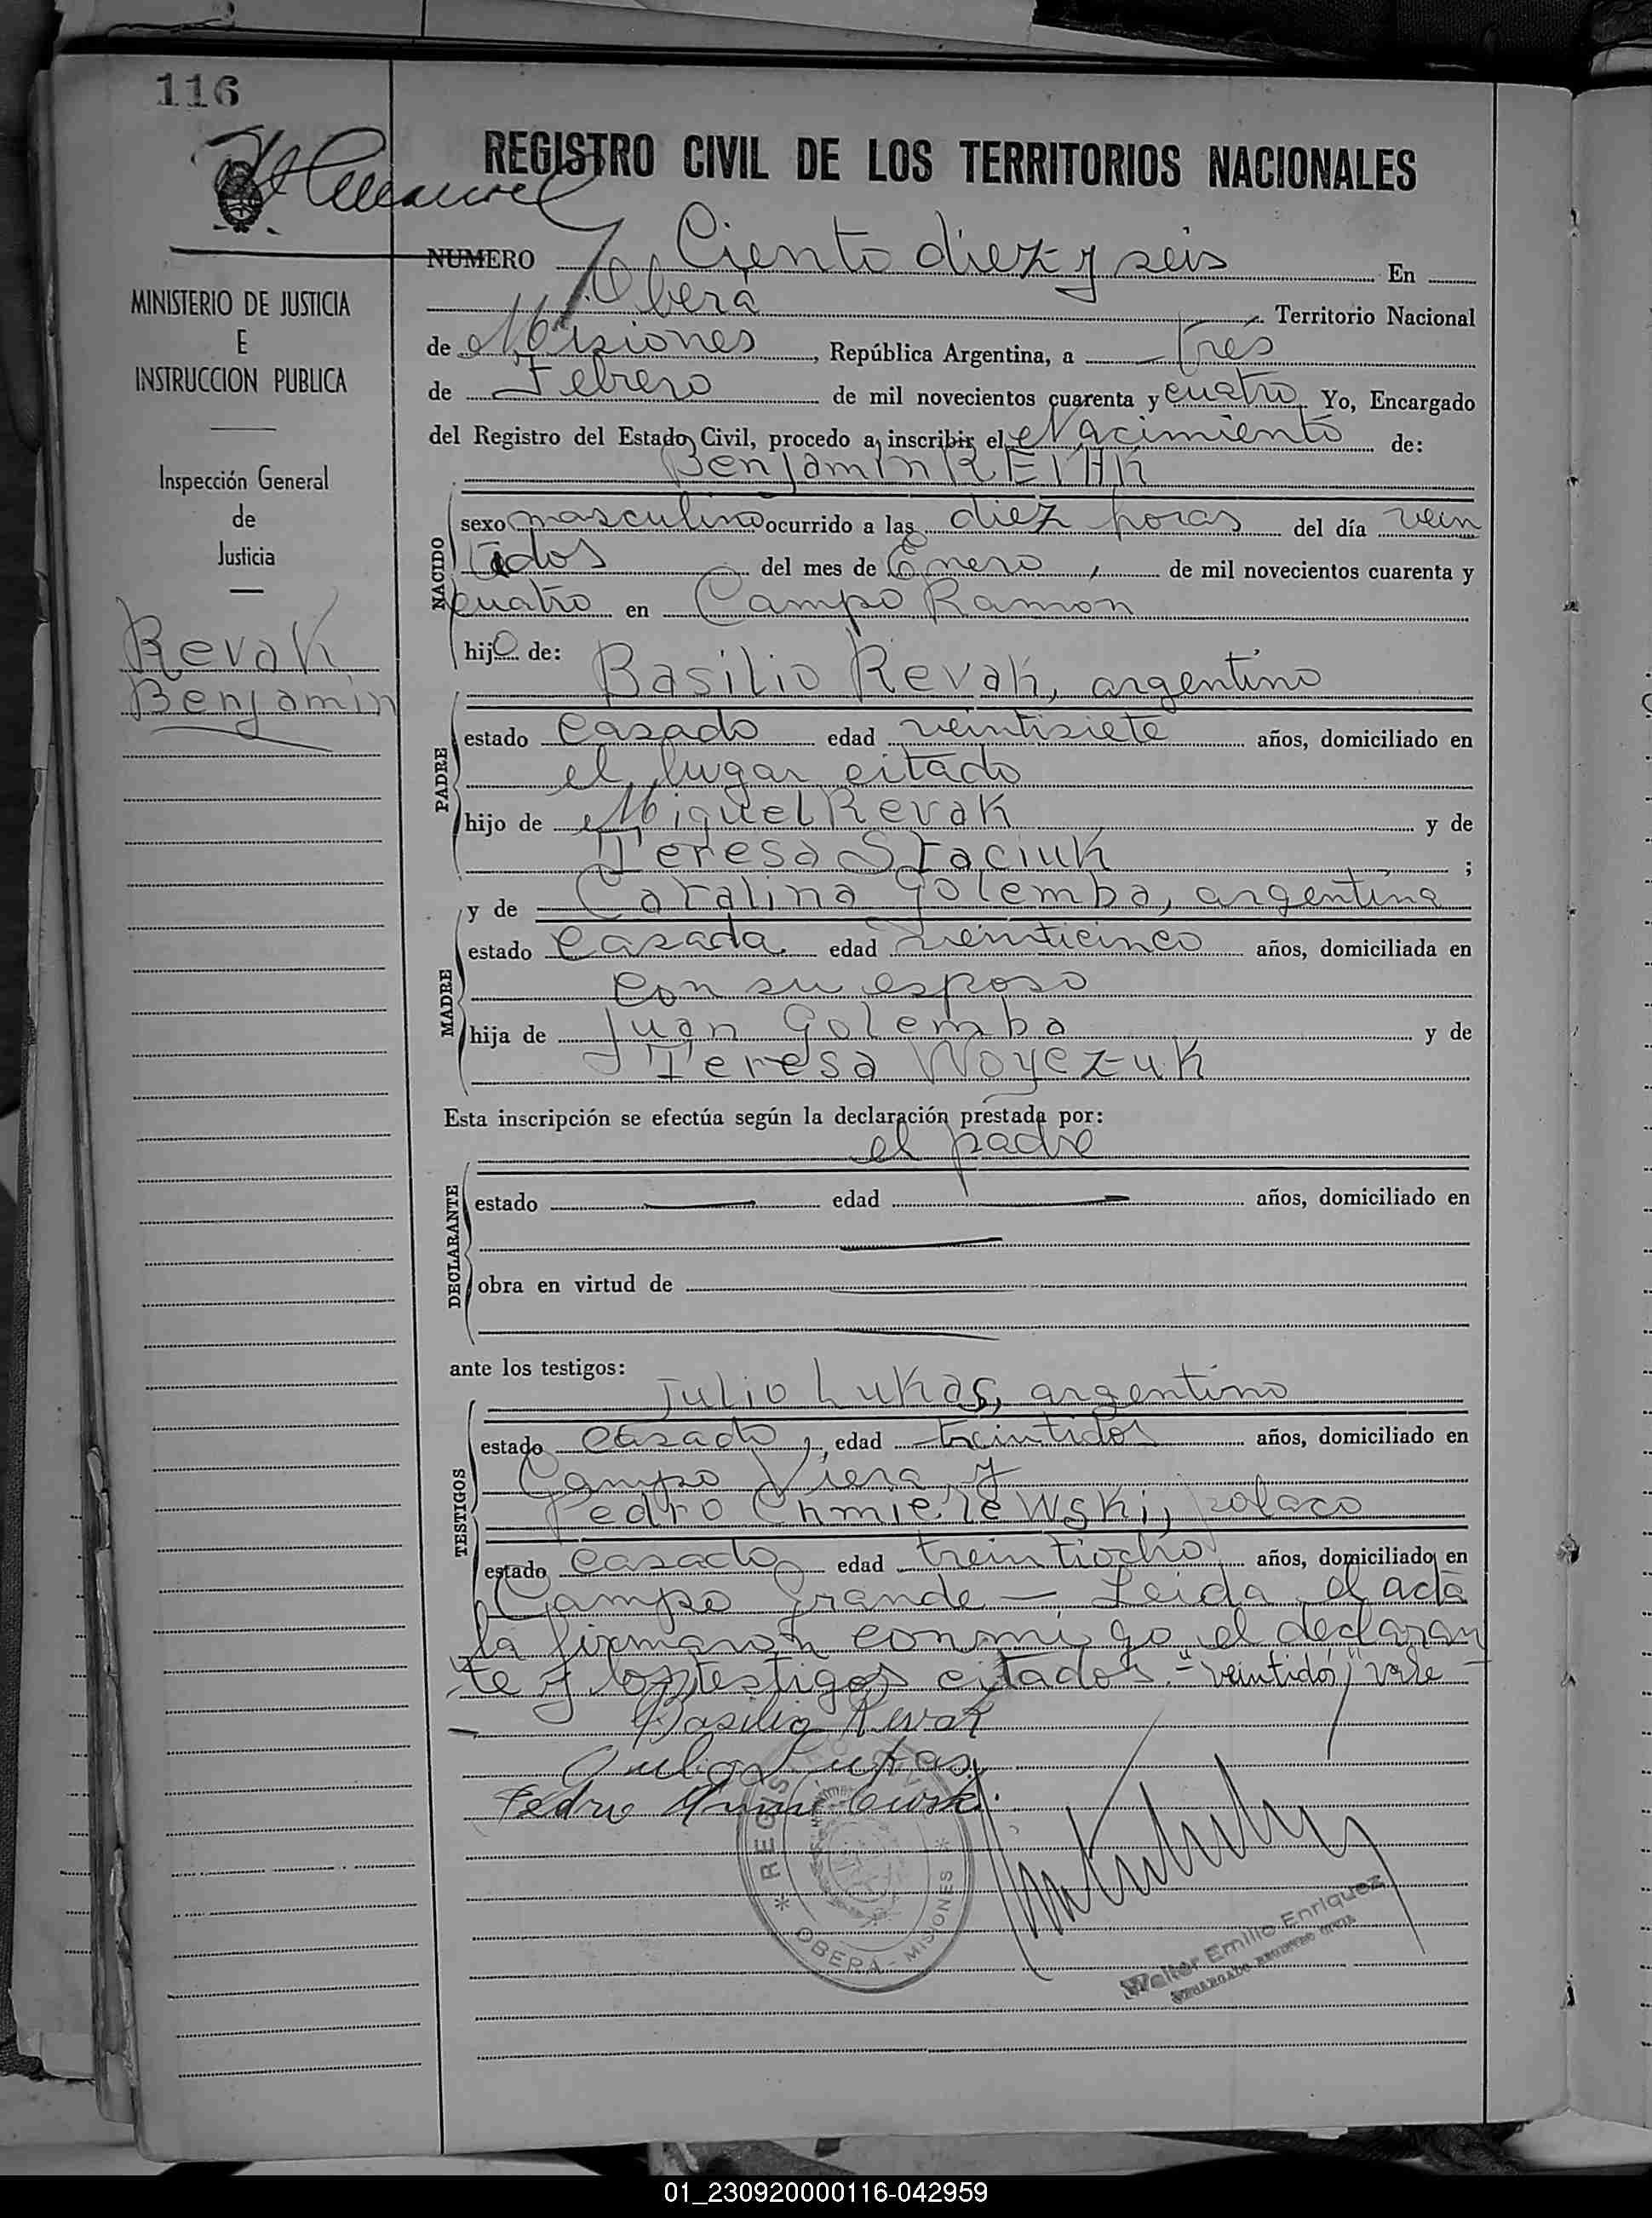 116
REGISTRO CIVIL DE LOS TERRITORIOS NACIONALES
NUMERO Ciento diez y seis En
Oberá Territorio Nacional
de Misiones, República Argentina, a tres
de Febrero de mil novecientos cuarenta y cuatro Yo, Encargado
del Registro del Estado Civil, procedo a inscribir el Nacimiento de:
Benjamin REVAK
NACIDO
sexo masculino ocurrido a las diez horas del día vein
tidos del mes de Enero, de mil novecientos cuarenta y
cuatro en Campo Ramon
hijo de:
Basilio Revak, argentino
PADRE
estado casado edad veintisiete años, domiciliado en
el lugar citado
hijo de Miguel Revak y de
Teresa Staciuk ;
y de Catalina Golemba, argentina
MADRE
estado casada edad veinticinco años, domiciliada en
con su esposo
hija de Juan Golemba y de
Teresa Woyczuk
Esta inscripción se efectúa según la declaración prestada por:
el padre
DECLARANTE
estado edad años, domiciliado en
obra en virtud de
ante los testigos:
Julio Lukas, argentino
TESTIGOS
estado casado, edad treintidos años, domiciliado en
Campo Viera y
Pedro Chmielewski, polaco
estado casado edad treintiocho años, domiciliado en
Campo Grande — Leida el acta
la firmaron conmigo el declaran
te y los testigos citados.- "veintidos" vale -
Basilio Revak
Julio Lukas
Pedro
REGISTRO CIVIL
OBERA - MISIONES
Walter Emilio Enriquez
ENCARGADO REGISTRO CIVIL
MINISTERIO DE JUSTICIA
E
INSTRUCCION PUBLICA
Inspección General
de
Justicia
Revak
Benjamin
01_230920000116-042959